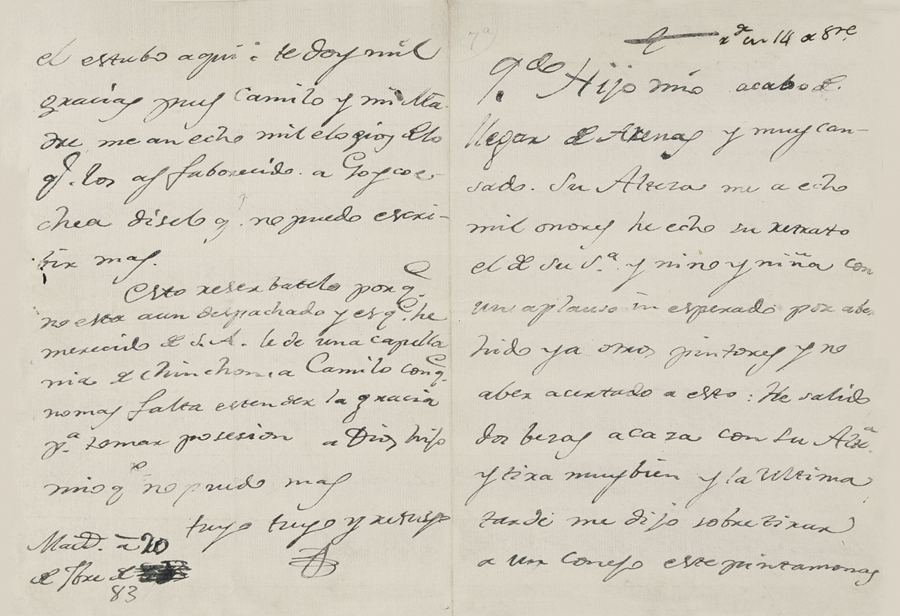 el estubo aqui: te doy mil
gracias pues Camilo y mi Ma-
dre me an echo mil elogios de lo
qe. los as faborecido. a Goycoe-
chea diselo qe. no puedo escri-
bir mas.
Esto reserbatelo porqe.
no esta aun despachado y es qe. he
merecido de S.A. le de una capella
nia de chinchon, a Camilo conqe.
no mas falta estender la gracia
pa. tomar posesion a Dios hijo
mio qe no puedo mas
tuyo tuyo y retuyo
Madd. a 20
de 7bre de
83
7a
rda en 14 a 8re
qdo Hijo mio acabo de
llegar de Arenas y muy can-
sado. Su Alteza me a echo
mil onores he echo su retrato
el de su Sa. y niño y niña con
un aplauso in esperado por aber
hido ya otros pintores y no
aber acertado a esto: He salido
dos bezes a caza con su Altza
y tira muy bien y la ultima
tarde me dijo sobre tirar
a un conejo este pintamonas